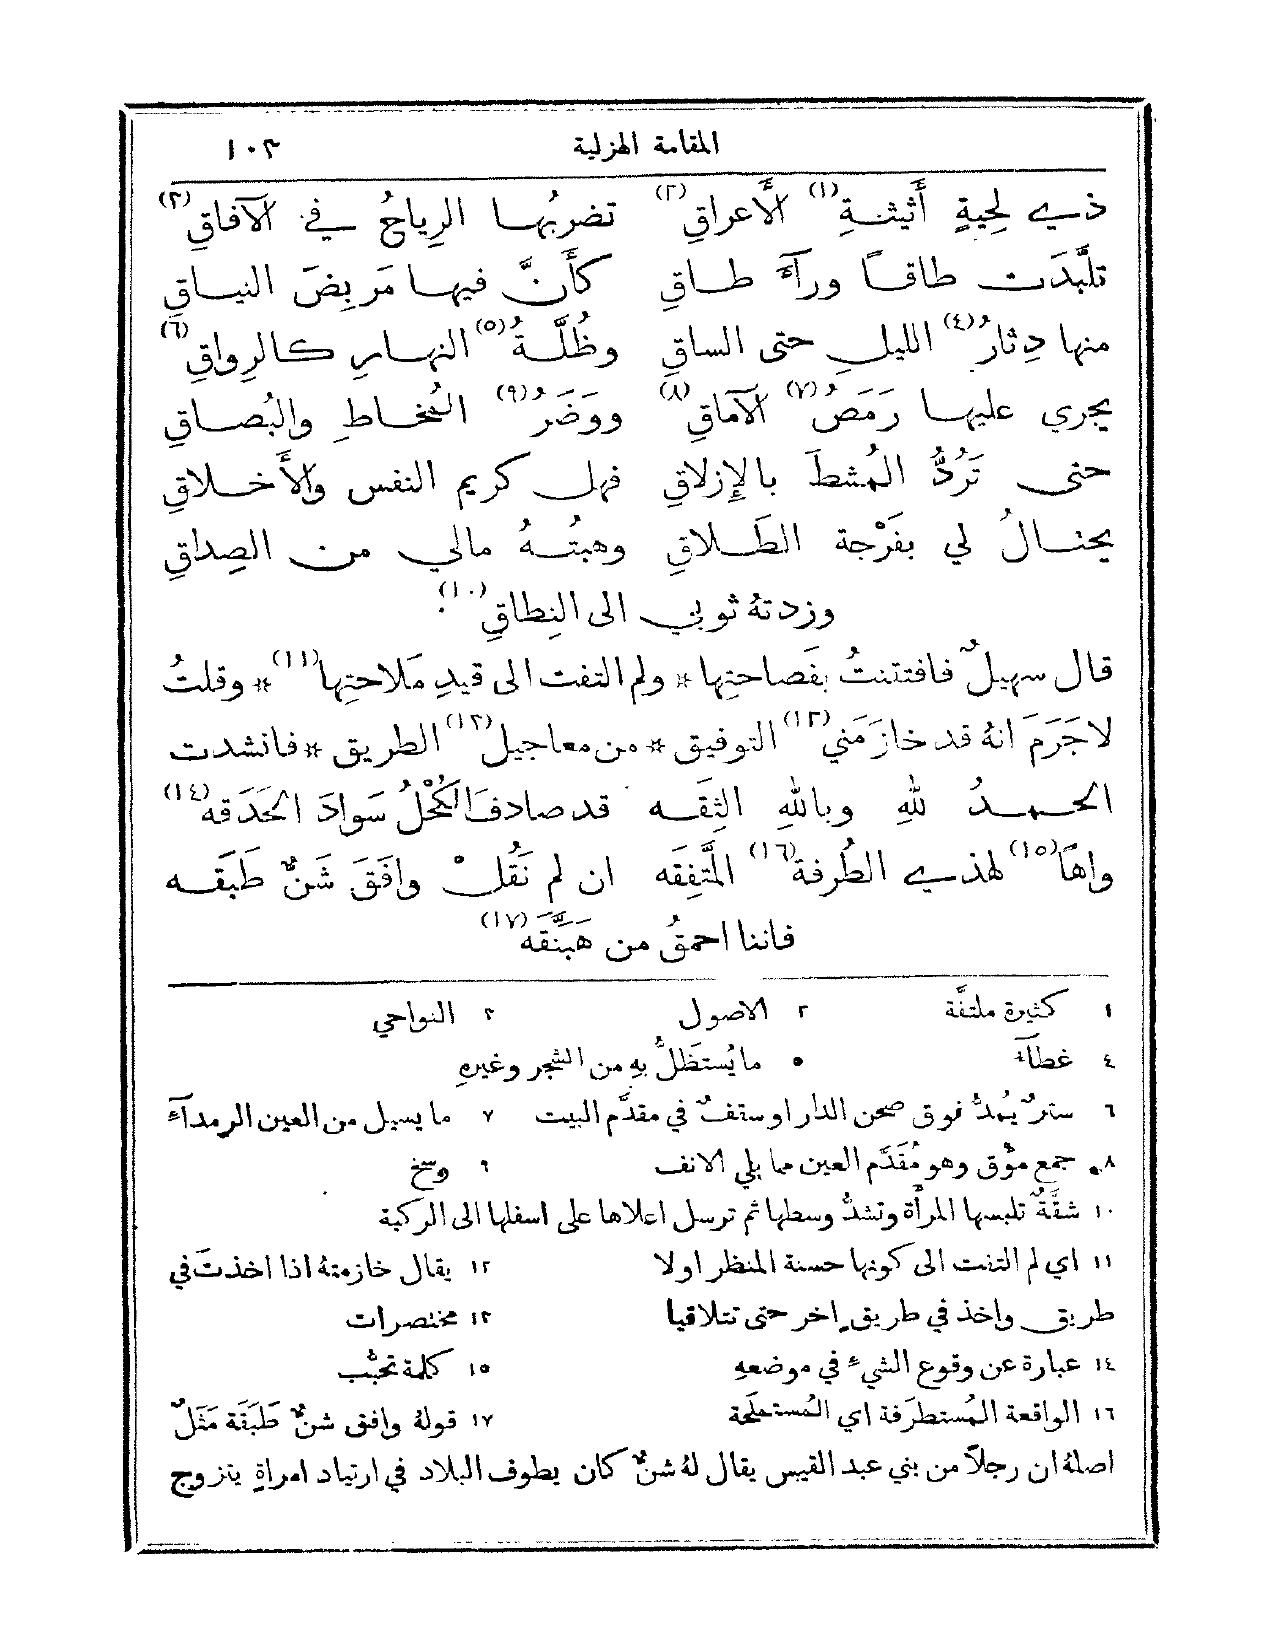 المقامة الهزلية ١٠٣
ذي لِحيةٍ أَثيثةِ(١) الأَعراقِ(٢) تضرِبُها الرِياحُ في الآفاقِ(٣)
تلبَّدَت طاقًا ورآءَ طاقِ كأَنَّ فيها مَربِضَ النياقِ
منها دِثارُ(٤) الليلِ حتى الساقِ وظُلَّةُ(٥) النهارِ كالرِواقِ(٦)
يجري عليها رَمَصُ(٧) الآماقِ(٨) ووَضَرُ(٩) المُخاطِ والبُصاقِ
حتى تَرُدُّ المُشطَ بالإِزلاقِ فهل كريم النفس والأَخلاقِ
يحنالُ لي بفَرْجة الطَلاقِ وهبتُهُ مالي من الصِداقِ
وزدتهُ ثوبي الى النِطاقِ(١٠).
قال سهيلٌ فافتتنتُ بفَصاحتِها * ولم التفت الى قيدِ مَلاحتِها(١١) * وقلتُ
لاجَرَمَ انهُ قد خازَمَني(١٢) التوفيق * من معاجيل(١٣) الطريق * فانشدت
الحمدُ للهِ وباللهِ الثِقَه قد صادفَ الكُحْلُ سَوادَ الحَدَقه(١٤)
واهًا(١٥) لهذي الطُرفة(١٦) المتَّفِقَه ان لم نَقُلْ وافَقَ شَنٌّ طَبَقَه
فاننا احمقُ من هَبَنَّقَه(١٧)
١ كثيرة ملتفَّة ٢ الاصول ٣ النواحي
٤ غطآء ٥ ما يُستَظَلُّ بهِ من الشجر وغيرهِ
٦ سترٌ يُمَدُّ فوق صحن الدار او سقفٌ في مقدَّم البيت ٧ ما يسيل من العين الرمدآء
٨ جمع مؤق وهو مُقَدَّم العين مما يلي الانف ٩ وسخ
١٠ شقَّةٌ تلبسها المرأة وتشدُّ وسطها ثم ترسل اعلاها على اسفلها الى الركبة
١١ اي لم التفت الى كونها حسنة المنظر او لا ١٢ يقال خازمتهُ اذا اخذتَ في
طريق واخذ في طريقٍ اخر حتى تتلاقيا ١٣ مختصرات
١٤ عبارة عن وقوع الشيء في موضعهِ ١٥ كلمة تعجُّب
١٦ الواقعة المُستطرَفة اي المُستملَحة ١٧ قولهُ وافق شنٌّ طَبَقَة مَثَلٌ
اصلهُ ان رجلاً من بني عبد القيس يقال لهُ شنٌّ كان يطوف البلاد في ارتياد امراةٍ يتزوج